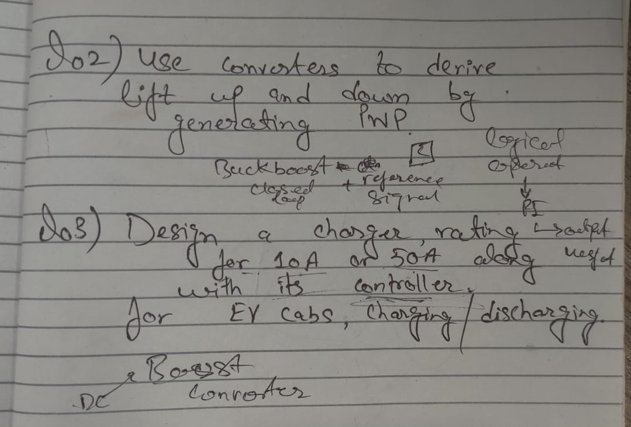 Q02) Use converters to derive
lift up and down by
generating PWP.
Buckboost
closed loop + reference signal
Logical operat
PI
Q03) Design a charger, rating
for 10A or 50A along
with its controller.
for EV cabs, charging/discharging.
Boost
DC Converter